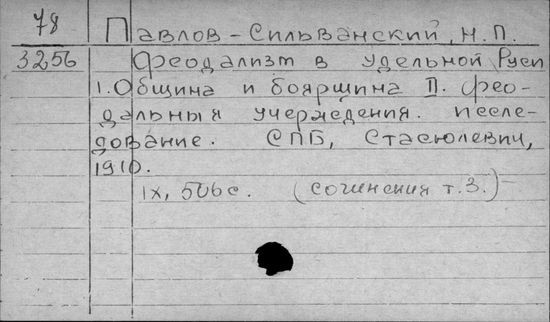 78 Павлов-Сильванский, Н.П.
3256 Феодализм в удельной Руси
1. Община и боярщина II. Фео-
дальныя учерждения. Иссле-
дование. СПБ, Стасюлевич,
1910.
IX, 506с. (Сочинения т.3.)